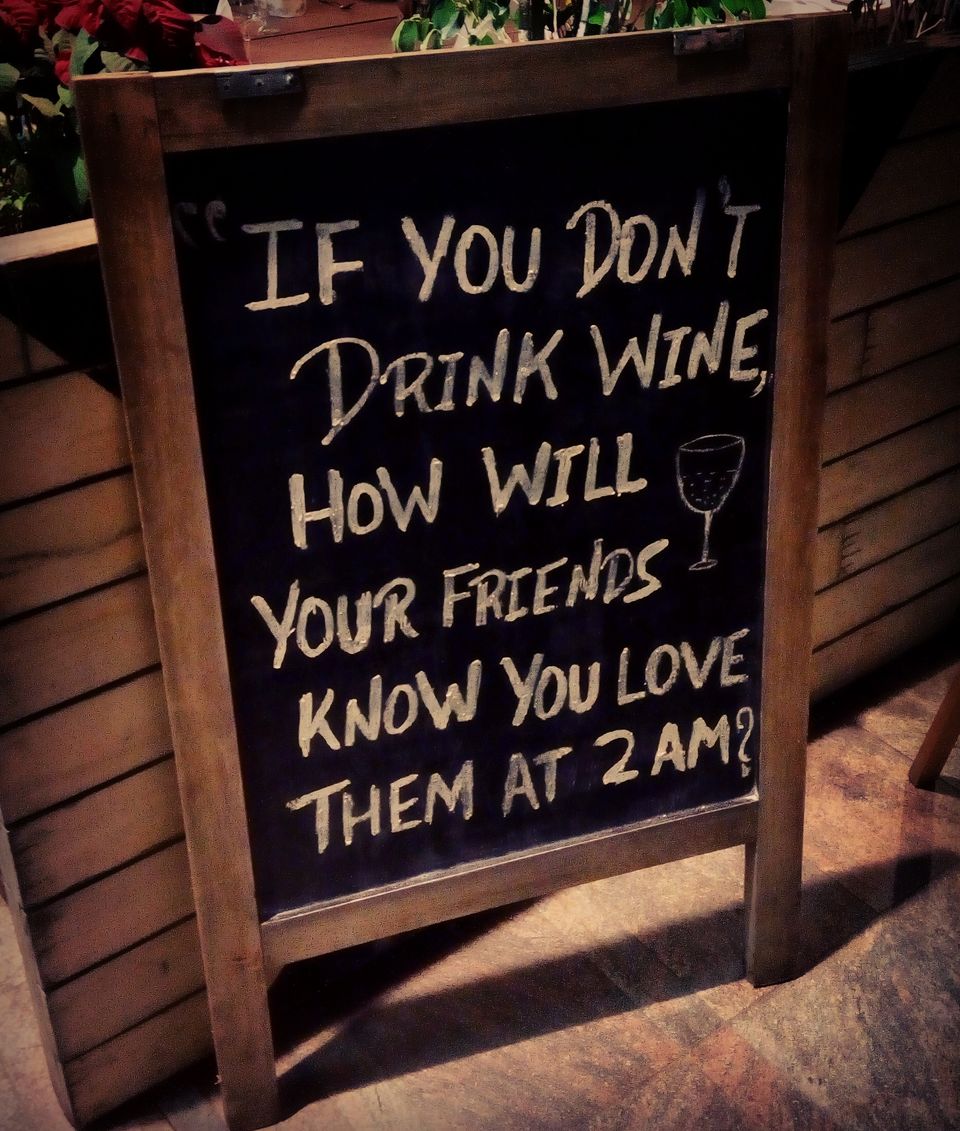 "IF YOU DON'T
DRINK WINE,
HOW WILL
YOUR FRIENDS
KNOW YOU LOVE
THEM AT 2 AM?